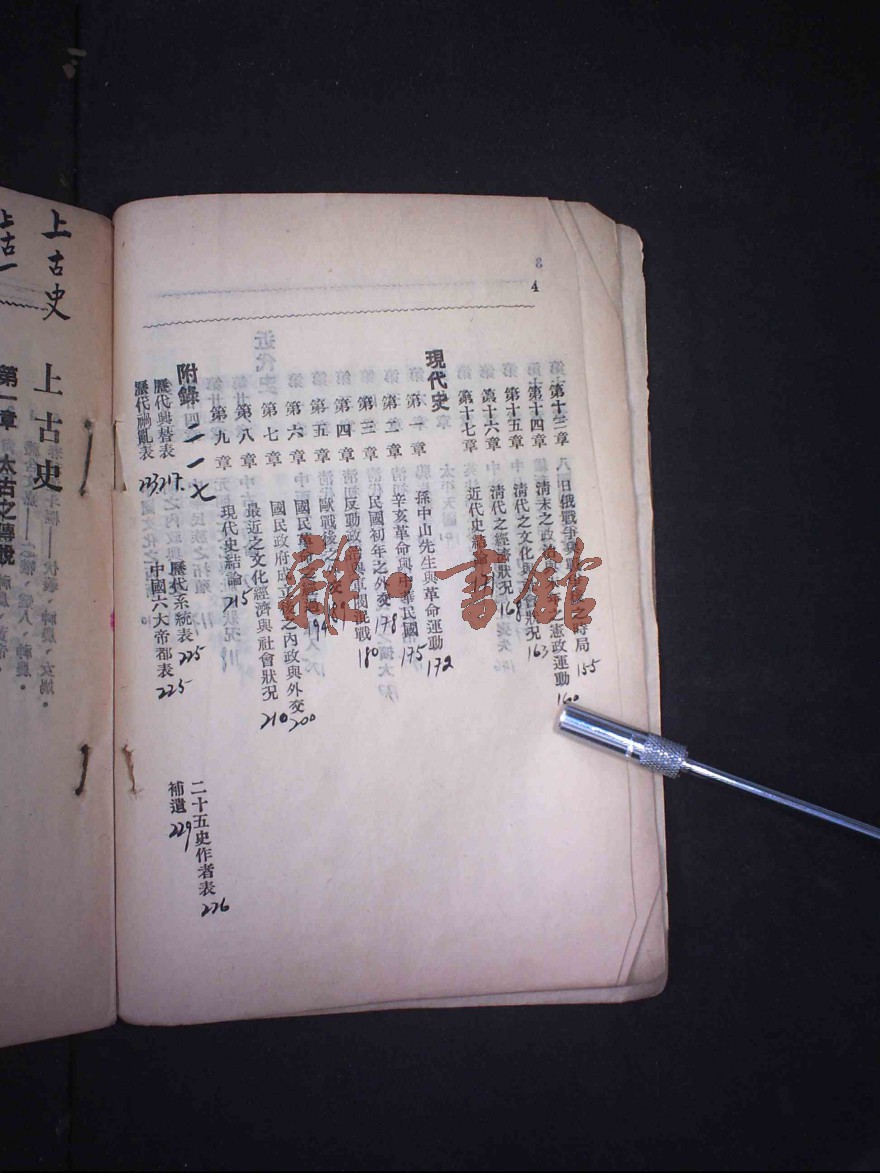 4
第十三章 日俄戰爭 之時局 155
第十四章 清末之政 憲政運動 160
第十五章 清代之文化與 狀況 163
第十六章 清代之經濟狀況 168
第十七章 近代史結論
現代史
第一章 孫中山先生與革命運動 172
第二章 辛亥革命與中華民國 175
第三章 民國初年之外交 178
第四章 反動政治與軍閥混戰 180
第五章 歐戰後之
第六章 國民革命 194
第七章 國民政府成立後之內政與外交 200
第八章 最近之文化經濟與社會狀況 210
第九章 現代史結論 215
附錄 二一七
歷代興替表 217.
歷代系統表 225
二十五史作者表 226
歷代禍亂表 223
中國六大帝都表 225
補遺 229
上古史
上古史
第一章 太古之傳說
雜·書館